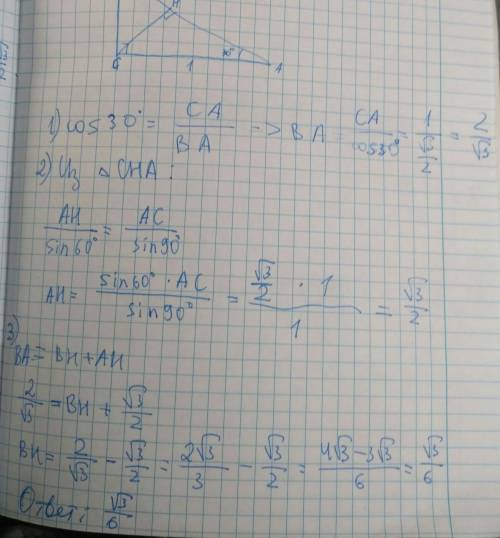 H
C 1 30° A
1) cos30° = CA/BA -> BA = CA/cos30° = 1/(√3/2) = 2/√3
2) Из △CHA:
AH/sin60° = AC/sin90°
AH = (sin60° · AC)/sin90° = (√3/2 · 1)/1 = √3/2
3)
BA = BH + AH
2/√3 = BH + √3/2
BH = 2/√3 - √3/2 = 2√3/3 - √3/2 = (4√3-3√3)/6 = √3/6
Ответ: √3/6